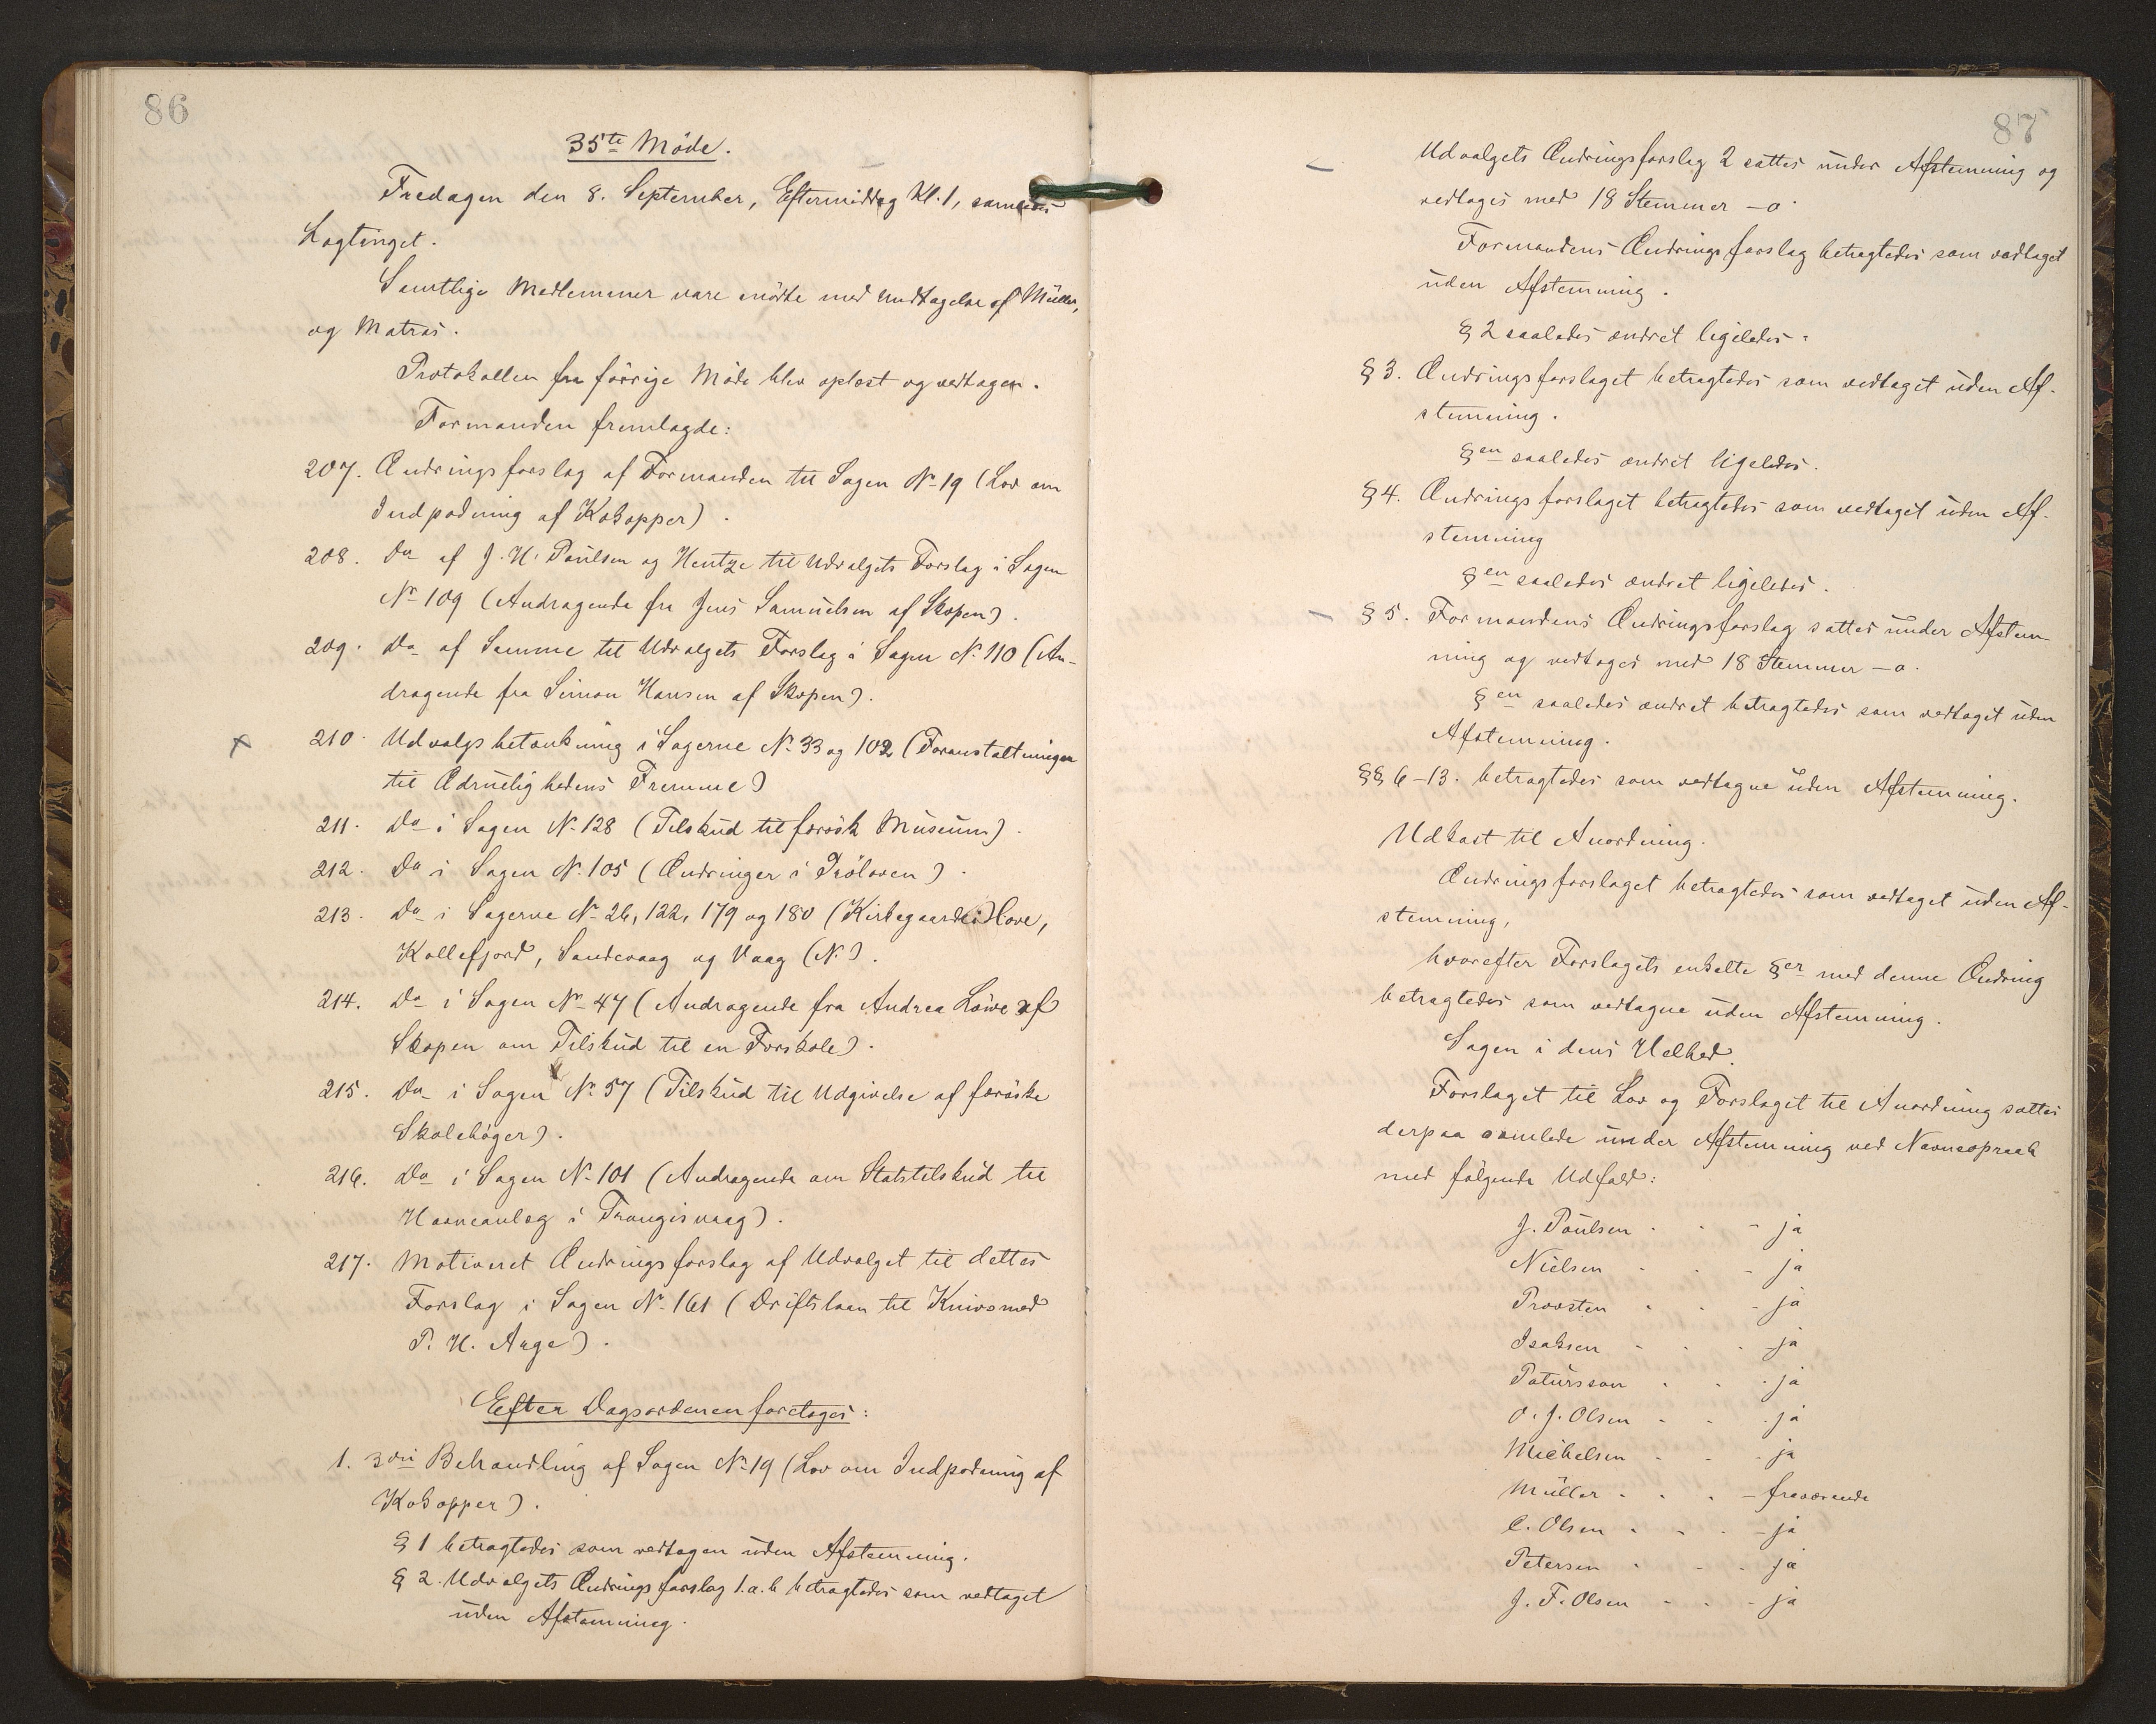 86
35te Möde.
Fredagen den 8. September, Eftermiddag Kl. 1, samledes
Lagtinget.
Samtlige Medlemmer vare mödte med Undtagelse af Müller,
og Matras.
Protokollen fra forrige Möde blev oplæst og vedtagen.
Formanden fremlagde:
207. Ændringsforslag af Formanden til Sagen No 19 (Lov om
Indpodning af Kokopper).
208. Do af J. H. Poulsen og Hentze til Udvalgets Forslag i Sagen
No 109 (Andragende fra Jens Samuelsen af Skopen).
209. Do af Samme til Udvalgets Forslag i Sagen No 110 (An-
dragende fra Simon Hansen af Skopen).
210. Udvalgsbetænkning i Sagerne No 33 og 102 (Foranstaltninger
til Ædruelighedens Fremme)
211. Do i Sagen No 128 (Tilskud til færøsk Museum).
212. Do i Sagen No 105 (Ændringer i Prölaven).
213. Do i Sagerne No 26, 122, 179 og 180 (Kirkegaarde i Hove,
Kollefjord, Sandevaag og Vaag (N.).
214. Do i Sagen No 47 (Andragende fra Andrea Löwe af
Skopen om Tilskud til en Forskole).
215. Do i Sagen No 57 (Tilskud til Udgivelse af færøske
Skolebøger).
216. Do i Sagen No 101 (Andragende om Statstilskud til
Havneanlæg i Trangisvaag).
217. Motiveret Ændringsforslag af Udvalget til dettes
Forslag i Sagen No 161 (Driftslaan til Knivsmed
P. H. Arge).
Efter Dagsordenen foretoges:
1. 3die Behandling af Sagen No 19 (Lov om Indpodning af
Kokopper).
§ 1 betragtedes som vedtagen uden Afstemning.
§ 2. Udvalgets Ændringsforslag 1.a.b betragtedes som vedtaget
uden Afstemning.
87
Udvalgets Ændringsforslag 2 sattes under Afstemning og
vedtoges med 18 Stemmer – o.
Formandens Ændringsforslag betragtedes som vedtaget
uden Afstemning.
§ 2 saaledes ændret ligeledes.
§ 3. Ændringsforslaget betragtedes som vedtaget uden Af-
stemning.
§en saaledes ændret ligeledes.
§ 4. Ændringsforslaget betragtedes som vedtaget uden Af-
stemning
§en saaledes ændret ligeledes.
§ 5. Formandens Ændringsforslag sattes under Afstem-
ning og vedtoges med 18 Stemmer – o.
§en saaledes ændret betragtedes som vedtaget uden
Afstemning.
§§ 6–13. betragtedes som vedtagne uden Afstemning.
Udkast til Anordning.
Ændringsforslaget betragtedes som vedtaget uden Af-
stemning,
hvorefter Forslagets enkelte §er med denne Ændring
betragtedes som vedtagne uden Afstemning.
Sagen i dens Helhed.
Forslaget til Lov og Forslaget til Anordning sattes
derpaa samlede under Afstemning ved Navneopraab
med følgende Udfald:
J. Poulsen - - - ja
Nielsen - - - ja
Provsten - - - ja
Isaksen - - - ja
Patursson - - - ja
O. J. Olsen - - - ja
Michelsen - - - ja
Müller - - - fraværende
C. Olsen - - - ja
Petersen - - - ja
J. F. Olsen - - - ja